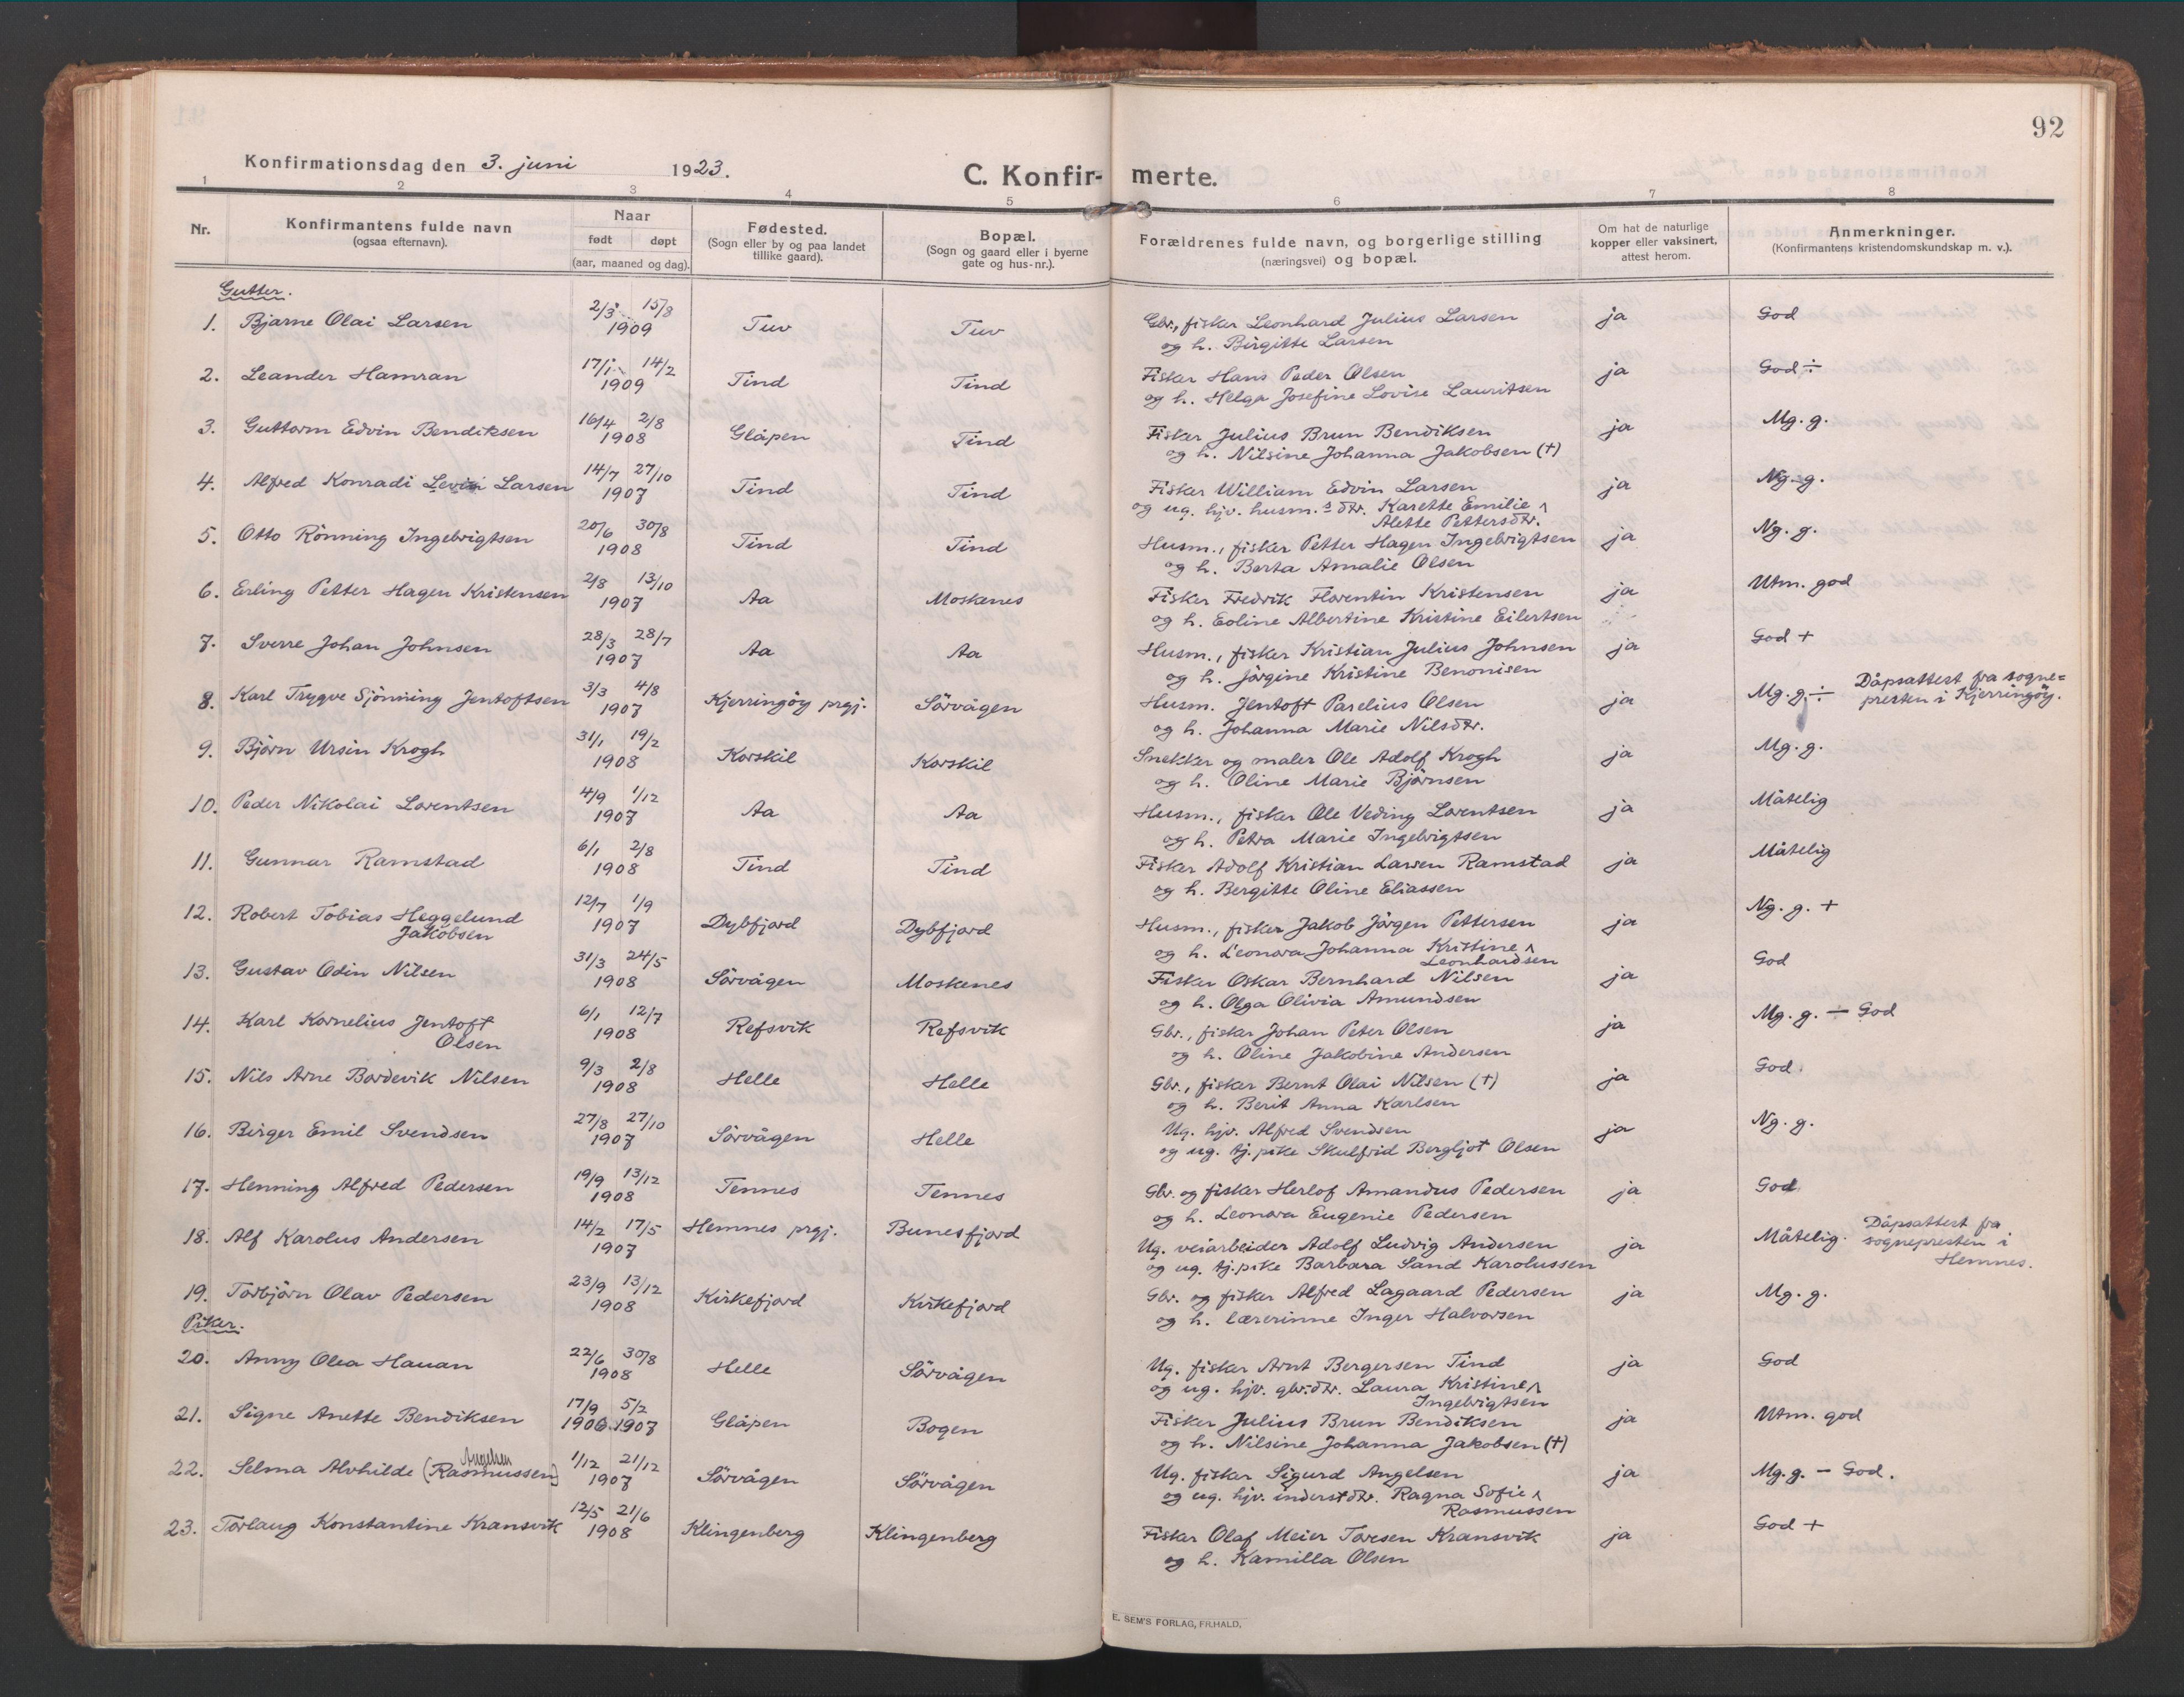 92
Konfirmationsdag den 3. juni 1923.
C. Konfir- merte.
1 2 3 4 5 6 7 8
Nr. Konfirmantens fulde navn (ogsaa efternavn). Naar født døpt (aar, maaned og dag). Fødested. (Sogn eller by og paa landet tillike gaard). Bopæl. (Sogn og gaard eller i byerne gate og hus-nr.). Forældrenes fulde navn, og borgerlige stilling (næringsvei) og bopæl. Om hat de naturlige kopper eller vaksinert, attest herom. Anmerkninger. (Konfirmantens kristendomskundskap m. v.).
Gutter.
1. Bjarne Olai Larsen 2/3 15/8 1909 Tuv Tuv Gbr., fisker Leonhard Julius Larsen ja God
og h. Birgitte Larsen
2. Leander Hamran 17/1 14/2 1909 Tind Tind Fisker Hans Peder Olsen ja God ÷
og h. Helga Josefine Lovise Lauritsen
3. Guttorm Edvin Bendiksen 16/4 2/8 1908 Glåpen Tind Fisker Julius Brun Bendiksen ja Mg. g.
og h. Nilsine Johanna Jakobsen (†)
4. Alfred Konradi Levin Larsen 14/7 27/10 1907 Tind Tind Fisker William Edvin Larsen ja Ng. g.
og ug. hjv. husm.s dtr. Karette Emilie
Alette Pettersdtr.
5. Otto Rönning Ingebrigtsen 20/6 30/8 1908 Tind Tind Husm., fisker Petter Hagen Ingebrigtsen ja Ng. g.
og h. Berta Amalie Olsen
6. Erling Petter Hagen Kristensen 2/8 13/10 1907 Aa Moskenes Fisker Fredrik Florentin Kristensen ja Utm. god
og h. Eoline Albertine Kristine Eilertsen
7. Sverre Johan Johnsen 28/3 28/7 1907 Aa Aa Husm., fisker Kristian Julius Johnsen ja God +
og h. Jörgine Kristine Benonisen
8. Karl Trygve Sjönning Jentoftsen 3/3 4/8 1907 Kjerringöy prgj. Sörvågen Husm. Jentoft Parelius Olsen ja Mg. g. ÷ Dåpsattest fra sogne=
og h. Johanna Marie Nilsdtr. presten i Kjerringöy.
9. Björn Ursin Krogh 31/1 19/2 1908 Korskil Korskil Snekker og maler Ole Adolf Krogh ja Mg. g.
og h. Oline Marie Björnsen
10. Peder Nikolai Lorentsen 4/9 1/12 1907 Aa Aa Husm., fisker Ole Veding Lorentsen ja Måtelig
og h. Petra Marie Ingebrigtsen
11. Gunnar Ramstad 6/1 2/8 1908 Tind Tind Fisker Adolf Kristian Larsen Ramstad ja Måtelig
og h. Bergitte Oline Eliassen
12. Robert Tobias Heggelund 12/7 1/9 1907 Dybfjord Dybfjord Husm., fisker Jakob Jörgen Pettersen ja Ng. g. +
Jakobsen og h. Leonora Johanna Kristine
Leonhardsen
13. Gustav Odin Nilsen 31/3 24/5 1908 Sörvågen Moskenes Fisker Oskar Bernhard Nilsen ja God
og h. Olga Olivia Amundsen
14. Karl Kornelius Jentoft 6/1 12/7 1908 Refsvik Refsvik Gbr., fisker Johan Peter Olsen ja Mg. g. ÷ God
Olsen og h. Oline Jakobine Andersen
15. Nils Arne Bordevik Nilsen 9/3 2/8 1908 Helle Helle Gbr., fisker Bernt Olai Nilsen (†) ja God
og h. Berit Anna Karlsen
16. Birger Emil Svendsen 27/8 27/10 1907 Sörvågen Helle Ug. hjv. Alfred Svendsen ja Ng. g.
og ug. tj. pike Skulfrid Bergljot Olsen
17. Henning Alfred Pedersen 19/9 13/12 1908 Tennes Tennes Gbr. og fisker Herlof Amandus Pedersen ja God
og h. Leonora Eugenie Pedersen
18. Alf Karolus Andersen 14/2 17/5 1907 Hemnes prgj. Bunesfjord Ug. veiarbeider Adolf Ludvig Andersen ja Måtelig. Dåpsattest fra
og ug. tj. pike Barbara Sand Karolussen sognepresten i
Hemnes.
19. Torbjörn Olav Pedersen 23/9 13/12 1908 Kirkefjord Kirkefjord Gbr. og fisker Alfred Lagaard Pedersen ja Mg. g.
og h. lærerinne Inger Halvorsen
Piker.
20. Anny Olea Hauan 22/6 30/8 1908 Helle Sörvågen Ug. fisker Arnt Bergersen Tind ja God
og ug. hjv. gbr.dtr. Laura Kristine
Ingebrigtsen
21. Signe Anette Bendiksen 17/9 5/2 1906 1907 Glåpen Bogen Fisker Julius Brun Bendiksen ja Utm. god
og h. Nilsine Johanna Jakobsen (†)
Angelsen
22. Selma Alvhilde (Rasmussen) 1/12 21/12 1907 Sörvågen Sörvågen Ug. fisker Sigurd Angelsen ja Mg. g. - God.
og ug. hjv. inderstdtr. Ragna Sofie
Rasmussen
23. Torlaug Konstantine Kransvik 12/5 21/6 1908 Klingenberg Klingenberg Fisker Olaf Meier Toresen Kransvik ja God +
og h. Kamilla Olsen
E. SEM'S FORLAG, FR.HALD.